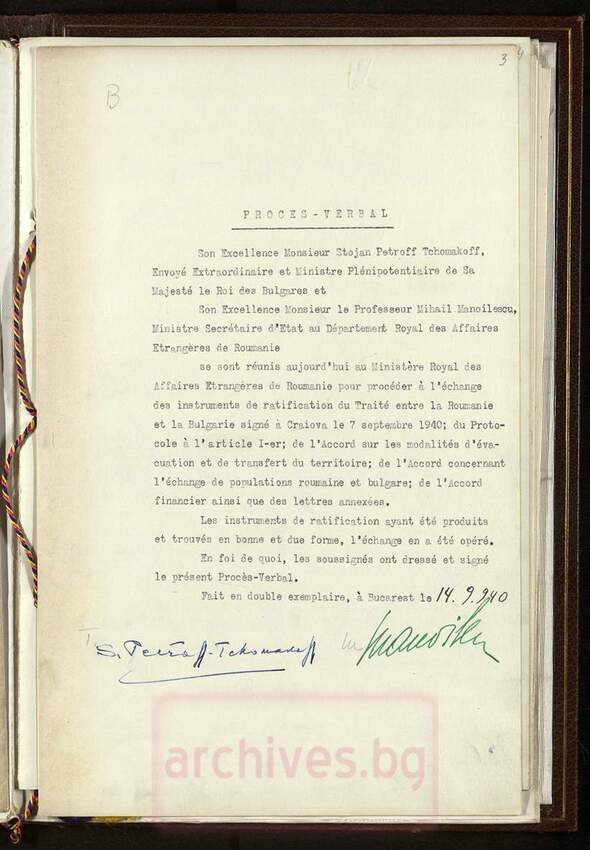 B
3 4
PROCES-VERBAL
Son Excellence Monsieur Stojan Petroff Tchomakoff,
Envoyé Extraordinaire et Ministre Plénipotentiaire de Sa
Majesté le Roi des Bulgares et
Son Excellence Monsieur le Professeur Mihail Manoilescu,
Ministre Secrétaire d'Etat au Département Royal des Affaires
Etrangères de Roumanie
se sont réunis aujourd'hui au Ministère Royal des
Affaires Etrangères de Roumanie pour procéder à l'échange
des instruments de ratification du Traité entre la Roumanie
et la Bulgarie signé à Craiova le 7 septembre 1940; du Proto-
cole à l'article I-er; de l'Accord sur les modalités d'éva-
cuation et de transfert du territoire; de l'Accord concernant
l'échange de populations roumaine et bulgare; de l'Accord
financier ainsi que des lettres annexées.
Les instruments de ratification ayant été produits
et trouvés en bonne et due forme, l'échange en a été opéré.
En foi de quoi, les soussignés ont dressé et signé
le présent Procès-Verbal.
Fait en double exemplaire, à Bucarest le 14.9.940
S. Petroff-Tchomakoff
archives.bg